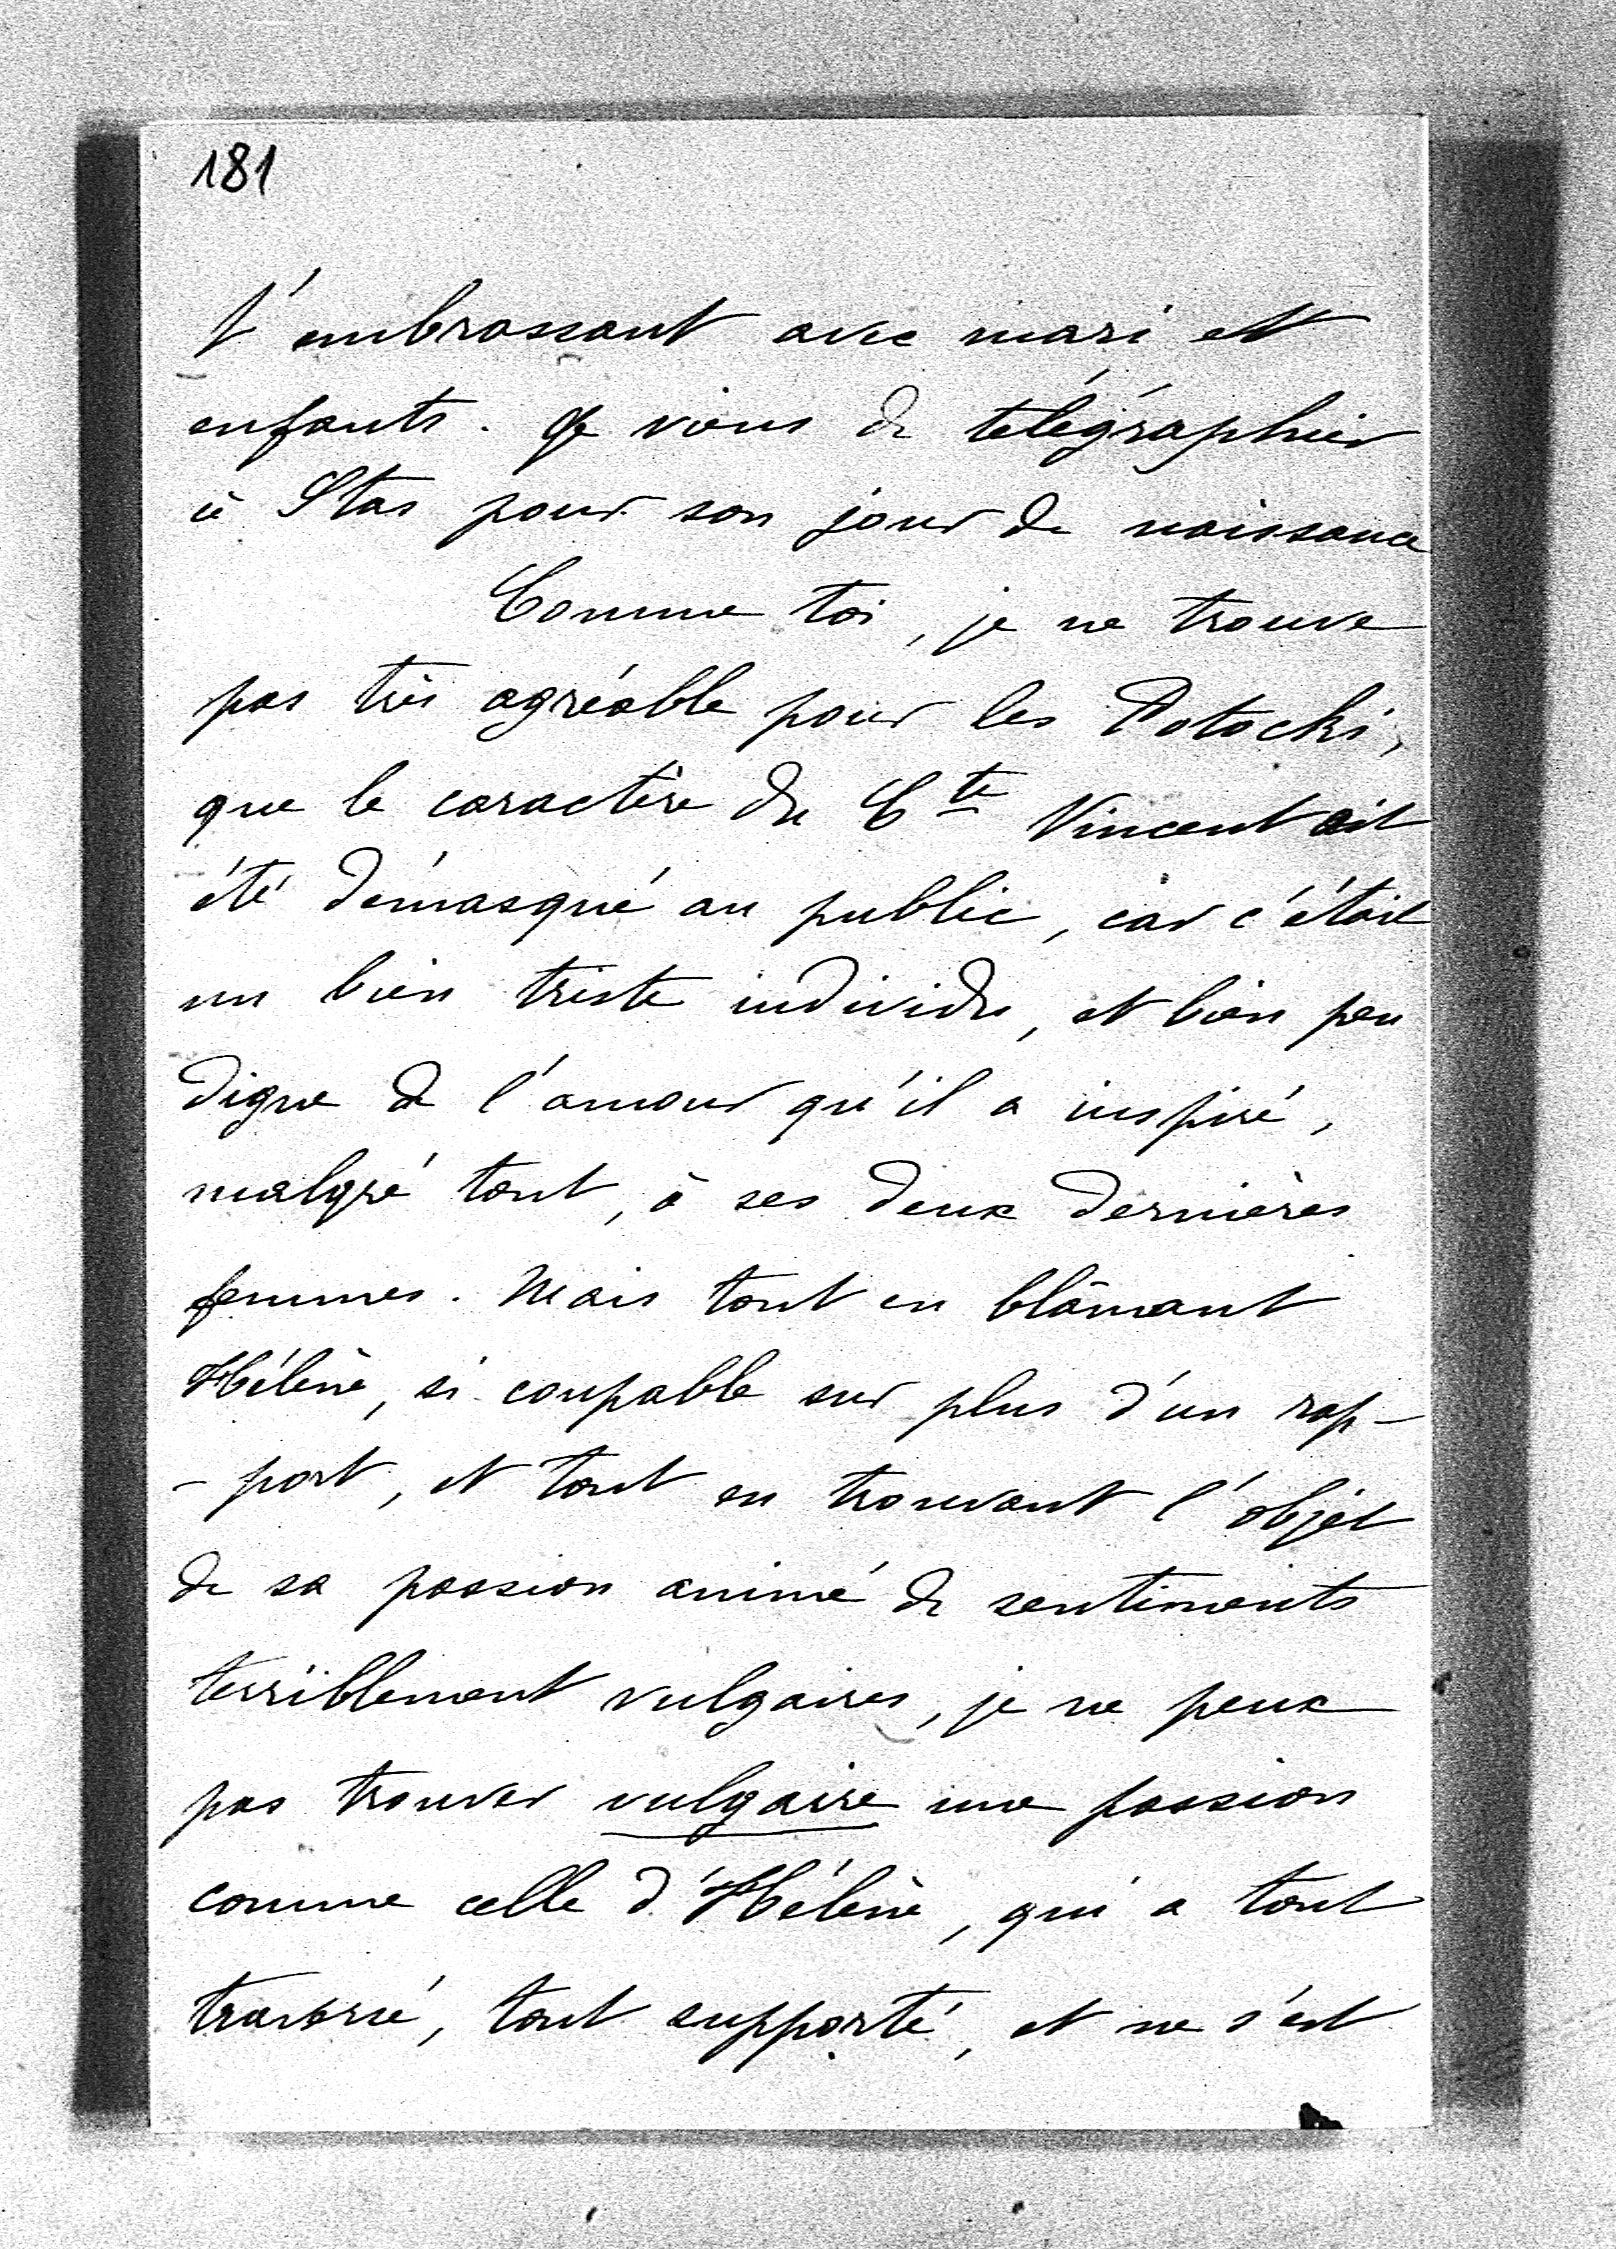 181
t'embrassant avec mari et
enfants. Je viens de télégraphier
à Stas pour son jour de naissance
Comme toi, je ne trouve
pas très agréable pour les Potocki,
que le caractère du Cte Vincent ait
été démasqué au public, car c'était
un bien triste individu, et bien peu
digne de l'amour qu'il a inspiré,
malgré tout, à ses deux dernières
femmes. Mais tout en blâmant
Hélène, si coupable sur plus d'un rap-
-port, et tout en trouvant l'objet
de sa passion animé de sentiments
terriblement vulgaires, je ne peux
pas trouver vulgaire une passion
comme celle d'Hélène, qui a tout
traversé, tout supporté, et ne s'est